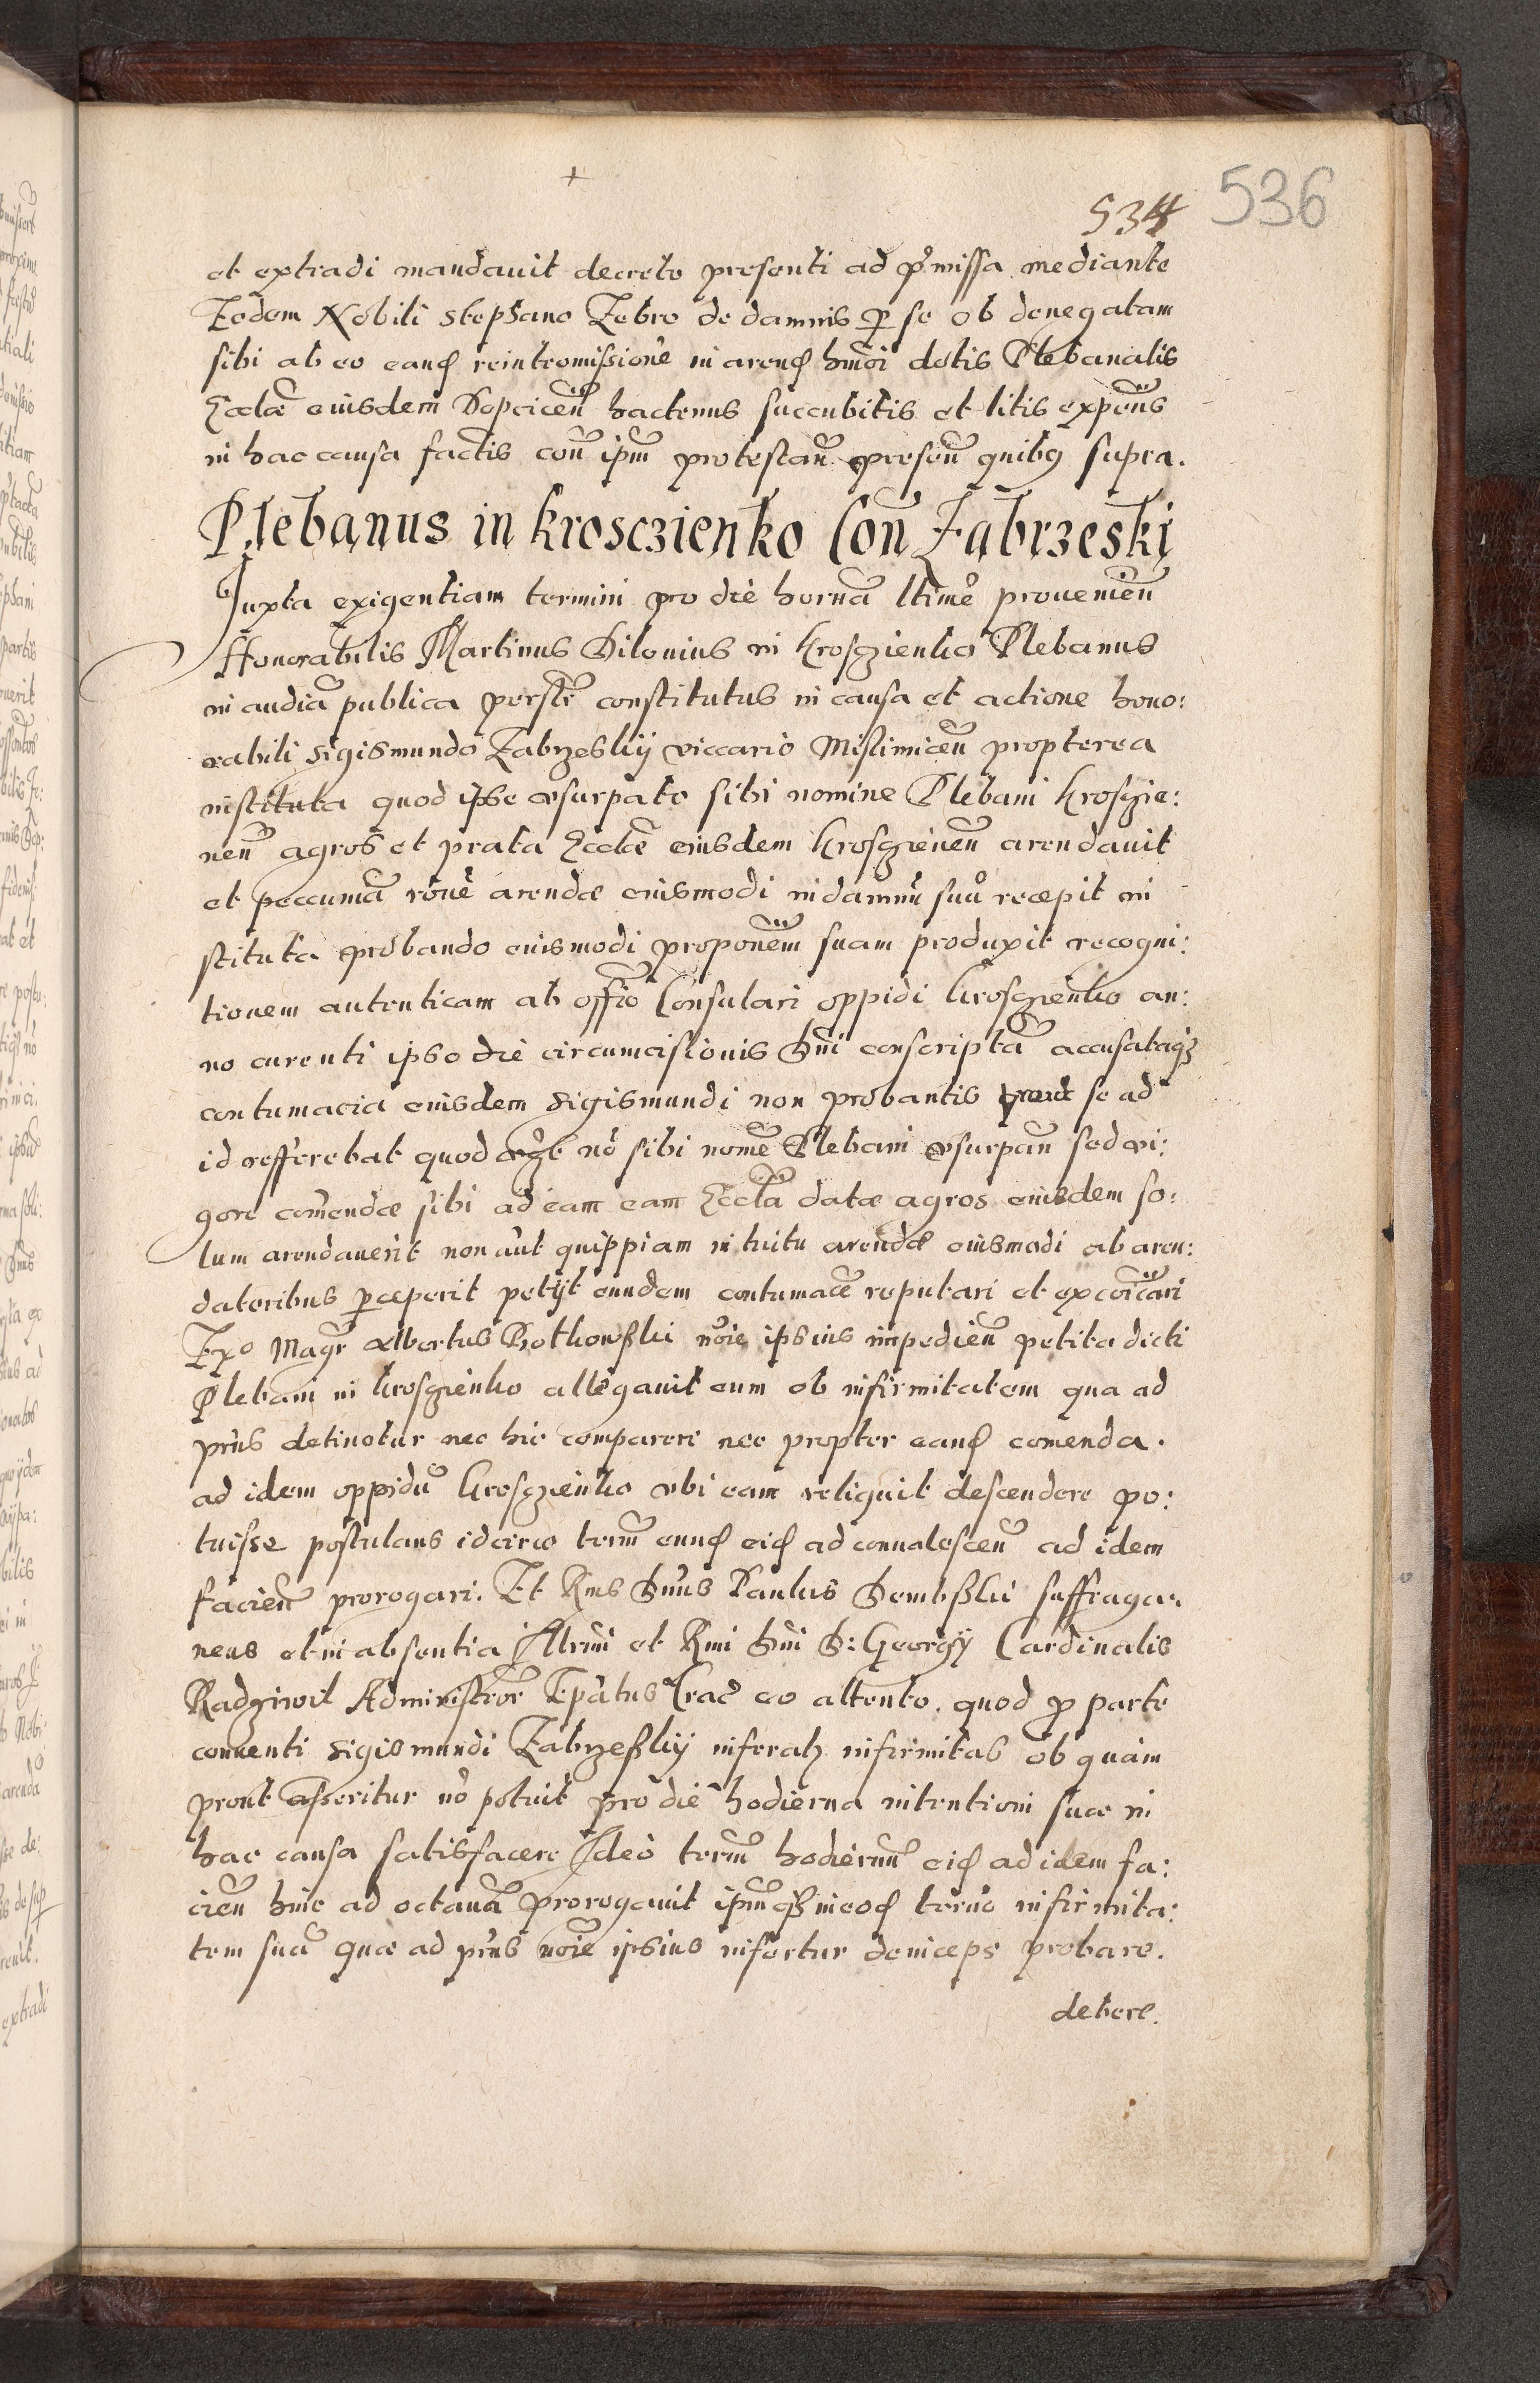 +
534 536
et extradi mandauit decreto presenti ad p̃missa mediante
Eodem Nobili Stephano Zebro de damnis p se ob denegatam
sibi ab eo eand reintromissionẽ in arend hmõi dotis Plebanalis
Ecclæ eiusdem Dopcicen̄ hactenus succubitis et litis expen̄s
in hac causa factis con̄ ipm̄ protestan̄ presen̄ quibq supra.
Plebanus in Krosczienko Con̄ Zabrzeski
Juxta exigentiam termini pro die hornā ltimẽ prouenien̄
Honorabilis Martinus Bilouius in Krosczienko Plebanus
in audiā publica persl̃r constitutus in causa et actione hono:
rabili Sigismundo Zabrzeskij viccario Mislimicen̄ propterea
instituta quod ipse vsurpato sibi nomine Plebani Kroszie:
nen̄ agros et prata Ecclæ eiusdem Krosczienen̄ arendauit
et peccuniā rõne arendæ eiusmodi in damnū suū recepit in
stituta probando eiusmodi proponẽm suam produxit recogni:
tionem autenticam ab offīo Consulari oppidi Krosczienko an:
no curenti ipso die circumcisionis Dnī conscriptā accusataq
contumacia eiusdem Sigismundi non probantis prout se ad
id refferebat quod nõ sibi nomẽ Plebani vsurpan̄ sed vi:
gore comendæ sibi ad eam eam Ecclā datæ agros eiusdem so:
lum arendauerit non aūt quippiam intuitu arendæ eiusmodi ab aren:
datoribus pceperit petijt eundem contumacẽ reputari et excoīcari
Exº Magr̃ Albertus Bothowski noīe ipsius impedien̄ petita dicti
Plebani in Krosczienko allegauit eum ob infirmitatem qua ad
prñs detinetur nec hic comparere nec propter eand comenda.
ad idem oppidū Krosczienko vbi eam reliquit descendere po:
tuisse postulans idcirco term̄ eund eid ad conualescen̄ ad idem
facien̄ prorogari. Et Rmṡ Dnūs Paulus Dembski suffraga:
neus et in absentia Illrmī et Rmi Dnī D: Georgij Cardinalis
Radziwil Administror̃ Epātus Crac̄ eo attento. quod p parte
conuenti Sigismundi Zabrzeskij inferatz infirmitas ob quam
prout asseritur nõ potuit pro die hodierna intentioni suæ in
hac causa satisfacere Ideo term̄ hodiernū eid ad idem fa:
cien̄ hinc ad octauā prorogauit ipmq̃ in eod term̃o infirmita:
tem suā quæ ad prñs noīe ipsius infertur deinceps probare.
debere.